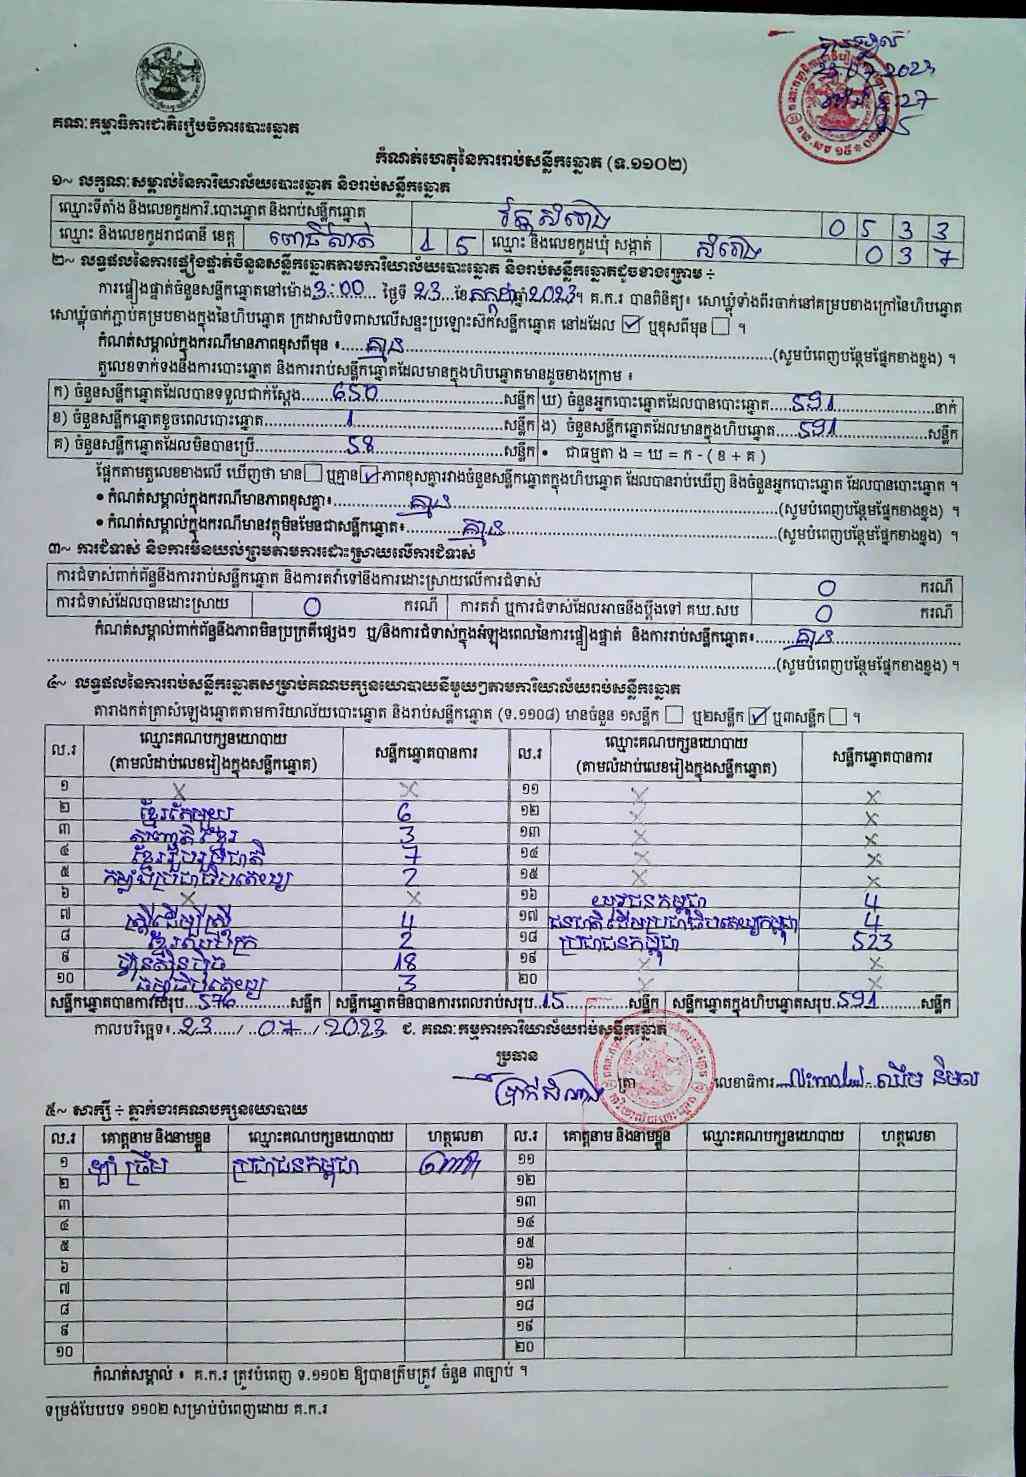 គណៈកម្មាធិការជាតិរៀបចំការបោះឆ្នោត
23.07.2023
កំណត់ហេតុនៃការរាប់សន្លឹកឆ្នោត (ទ.១១០២)
១~ លក្ខណៈសម្គាល់នៃការិយាល័យបោះឆ្នោត និងរាប់សន្លឹកឆ្នោត
ឈ្មោះទីតាំង និងលេខកូដការិ.បោះឆ្នោត និងរាប់សន្លឹកឆ្នោត វត្តសំរោង 0 5 3 3
ឈ្មោះ និងលេខកូដរាជធានី ខេត្ត ពោធិ៍សាត់ 1 5 ឈ្មោះ និងលេខកូដឃុំ សង្កាត់ សំរោង 0 3 7
២~ លទ្ធផលនៃការផ្ទៀងផ្ទាត់ចំនួនសន្លឹកឆ្នោតតាមការិយាល័យបោះឆ្នោត និងរាប់សន្លឹកឆ្នោតដូចខាងក្រោម ÷
ការផ្ទៀងផ្ទាត់ចំនួនសន្លឹកឆ្នោតនៅម៉ោង 3:00 ថ្ងៃទី 23 ខែ កក្កដា ឆ្នាំ 2023។ គ.ក.រ បានពិនិត្យ៖ សោឃ្លុំទាំងពីរចាក់នៅគម្របខាងក្រៅនៃហិបឆ្នោត
សោឃ្លុំចាក់ភ្ជាប់គម្របខាងក្នុងនៃហិបឆ្នោត ក្រដាសបិទពាសលើសន្ទះប្រឡោះស៊កសន្លឹកឆ្នោត នៅដដែល ☑ ឬខុសពីមុន ☐ ។
កំណត់សម្គាល់ក្នុងករណីមានភាពខុសពីមុន ៖ គ្មាន (សូមបំពេញបន្ថែមផ្នែកខាងខ្នង) ។
តួលេខទាក់ទងនឹងការបោះឆ្នោត និងការរាប់សន្លឹកឆ្នោតដែលមានក្នុងហិបឆ្នោតមានដូចខាងក្រោម ៖
ក) ចំនួនសន្លឹកឆ្នោតដែលបានទទួលជាក់ស្តែង 650 សន្លឹក ឃ) ចំនួនអ្នកបោះឆ្នោតដែលបានបោះឆ្នោត 591 នាក់
ខ) ចំនួនសន្លឹកឆ្នោតខូចពេលបោះឆ្នោត 1 សន្លឹក ង) ចំនួនសន្លឹកឆ្នោតដែលមានក្នុងហិបឆ្នោត 591 សន្លឹក
គ) ចំនួនសន្លឹកឆ្នោតដែលមិនបានប្រើ 58 សន្លឹក • ជាធម្មតា ង = ឃ = ក - ( ខ + គ )
ផ្អែកតាមតួលេខខាងលើ ឃើញថា មាន ☐ ឬគ្មាន ☑ ភាពខុសគ្នារវាងចំនួនសន្លឹកឆ្នោតក្នុងហិបឆ្នោត ដែលបានរាប់ឃើញ និងចំនួនអ្នកបោះឆ្នោត ដែលបានបោះឆ្នោត ។
• កំណត់សម្គាល់ក្នុងករណីមានភាពខុសគ្នា៖ គ្មាន (សូមបំពេញបន្ថែមផ្នែកខាងខ្នង) ។
• កំណត់សម្គាល់ក្នុងករណីមានវត្ថុមិនមែនជាសន្លឹកឆ្នោត៖ គ្មាន (សូមបំពេញបន្ថែមផ្នែកខាងខ្នង) ។
៣~ ការជំទាស់ និងការមិនយល់ព្រមតាមការដោះស្រាយលើការជំទាស់
ការជំទាស់ពាក់ព័ន្ធនឹងការរាប់សន្លឹកឆ្នោត និងការតវ៉ាទៅនឹងការដោះស្រាយលើការជំទាស់ 0 ករណី
ការជំទាស់ដែលបានដោះស្រាយ 0 ករណី ការតវ៉ា ឬការជំទាស់ដែលអាចនឹងប្តឹងទៅ គឃ.សប 0 ករណី
កំណត់សម្គាល់ពាក់ព័ន្ធនឹងភាពមិនប្រក្រតីផ្សេងៗ ឬ/និងការជំទាស់ក្នុងអំឡុងពេលនៃការផ្ទៀងផ្ទាត់ និងការរាប់សន្លឹកឆ្នោត៖ គ្មាន
(សូមបំពេញបន្ថែមផ្នែកខាងខ្នង) ។
៤~ លទ្ធផលនៃការរាប់សន្លឹកឆ្នោតសម្រាប់គណបក្សនយោបាយនីមួយៗតាមការិយាល័យរាប់សន្លឹកឆ្នោត
តារាងកត់ត្រាសំឡេងឆ្នោតតាមការិយាល័យបោះឆ្នោត និងរាប់សន្លឹកឆ្នោត (ទ.១១០៨) មានចំនួន ១សន្លឹក ☐ ឬ២សន្លឹក ☑ ឬ៣សន្លឹក ☐ ។
ល.រ ឈ្មោះគណបក្សនយោបាយ (តាមលំដាប់លេខរៀងក្នុងសន្លឹកឆ្នោត) សន្លឹកឆ្នោតបានការ ល.រ ឈ្មោះគណបក្សនយោបាយ (តាមលំដាប់លេខរៀងក្នុងសន្លឹកឆ្នោត) សន្លឹកឆ្នោតបានការ
១ X X ១១ X X
២ ខ្មែរតែមួយ 6 ១២ X X
៣ 3 ១៣ X X
៤ ខ្មែររួបរួមជាតិ 7 ១៤ X X
៥ កម្លាំងប្រជាធិបតេយ្យ 2 ១៥ X X
៦ X X ១៦ យុវជនកម្ពុជា 4
៧ ស្ត្រីដើម្បីស្ត្រី 4 ១៧ ជនជាតិដើមប្រជាធិបតេយ្យកម្ពុជា 4
៨ 2 ១៨ ប្រជាជនកម្ពុជា 523
៩ ហ្វ៊ុនស៊ិនប៉ិច 18 ១៩ X X
១០ ធម្មាធិបតេយ្យ 3 ២០ X X
សន្លឹកឆ្នោតបានការសរុប 576 សន្លឹក សន្លឹកឆ្នោតមិនបានការពេលរាប់សរុប 15 សន្លឹក សន្លឹកឆ្នោតក្នុងហិបឆ្នោតសរុប 591 សន្លឹក
កាលបរិច្ឆេទ៖ 23 / 07 / 2023 ជ. គណៈកម្មការការិយាល័យរាប់សន្លឹកឆ្នោត
ប្រធាន
ត្រា លេខាធិការ ឈឹម និមល
៥~ សាក្សី ÷ ភ្នាក់ងារគណបក្សនយោបាយ
ល.រ គោត្តនាម និងនាមខ្លួន ឈ្មោះគណបក្សនយោបាយ ហត្ថលេខា ល.រ គោត្តនាម និងនាមខ្លួន ឈ្មោះគណបក្សនយោបាយ ហត្ថលេខា
១ ប្រជាជនកម្ពុជា ១១
២ ១២
៣ ១៣
៤ ១៤
៥ ១៥
៦ ១៦
៧ ១៧
៨ ១៨
៩ ១៩
១០ ២០
កំណត់សម្គាល់ ៖ គ.ក.រ ត្រូវបំពេញ ទ.១១០២ ឱ្យបានត្រឹមត្រូវ ចំនួន ៣ច្បាប់ ។
ទម្រង់បែបបទ ១១០២ សម្រាប់បំពេញដោយ គ.ក.រ